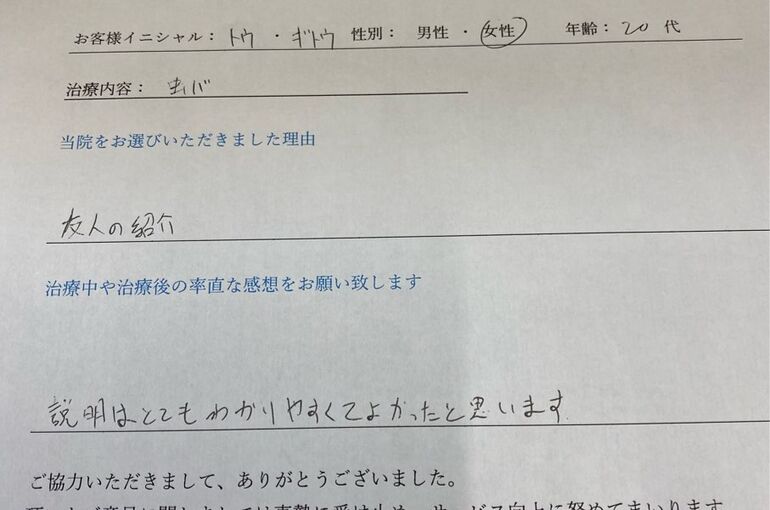 お客様イニシャル： トウ ・ ギトウ 性別： 男性 ・ 女性 年齢： 20 代
治療内容： 虫バ
当院をお選びいただきました理由
友人の紹介
治療中や治療後の率直な感想をお願い致します
説明はとてもわかりやすくてよかったと思います
ご協力いただきまして、ありがとうございました。